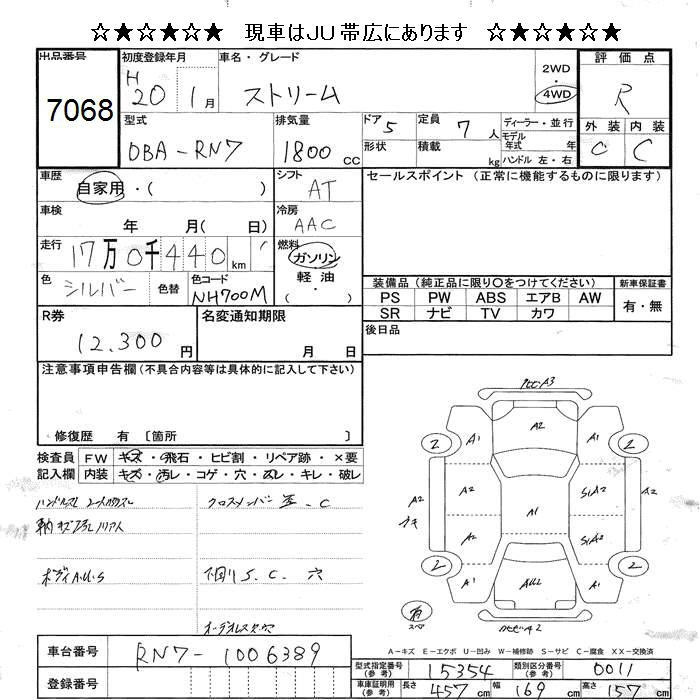 ☆★☆★☆★ 現車はJU帯広にあります ☆★☆★☆★
出品番号 初度登録年月 車名・グレード 評価点
7068 H20 1月 ストリーム 2WD 4WD R
型式 排気量 ドア 5 定員 7人 ディーラー・並行 外装 内装
モデル年式 年式
DBA-RN7 1800cc 形状 積載 kg ハンドル 左・右 C C
車歴 自家用・( ) シフト AT セールスポイント (正常に機能するものに限ります)
車検 年 月( 日) 冷房 AAC
走行 17万0千440km 燃料 ガソリン 軽油
色 シルバー 色替 色コード NH700M ・( )
装備品 (純正品に限り○をつけてください) 新車保証書
PS PW ABS エアB AW 有・無
SR ナビ TV カワ
R券 12,300円 名変通知期限 月 日 後日品
注意事項申告欄(不具合内容等は具体的に記入して下さい)
修復歴 有 〔箇所 〕
検査員 FW キズ・飛石・ヒビ割・リペア跡・×要
記入欄 内装 キズ・汚レ・コゲ・穴・ヌレ・キレ・破レ
クロスメンバー 歪.C
ボディA.U.S 下回りS.C.穴
A3
A2
2 A1 A1 2
A2 A2 S1A2 A2
A1
A2 S1A2
2 A1 A1 2
有 スペア
A-キズ E-エクボ U-凹み W-補修跡 S-サビ C-腐食 XX-交換済
車台番号 RN7-1006389
登録番号
型式指定番号(参考) 15354 類別区分番号(参考) 0011
車庫証明用(参考) 長さ 457cm 幅 169cm 高さ 157cm